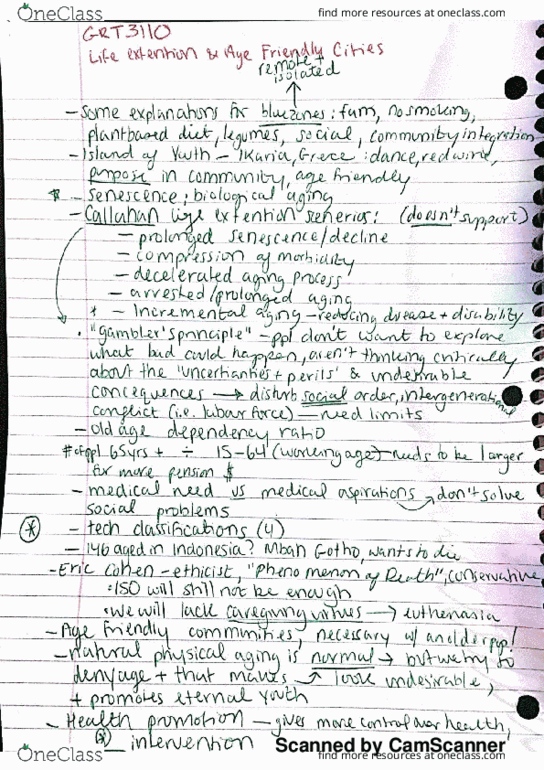 OneClass
find more resources at oneclass.com
GRT3110
Life extention & Age Friendly Cities
remote +
isolated
- Some explanations for bluezones: fam, no smoking,
plantbased diet, legumes, social, community integration
- Island of Youth - Ikaria, Grece : dance, red wine,
purpose in community, age friendly
* - Senescence : biological aging
- Callahan life extention scenerios: (doesn't support)
- prolonged senescence/decline
- compression of morbidity
- decelerated aging process
- arrested/prolonged aging
* - Incremental aging - reducing disease + disability
• "gambler's principle" - ppl don't want to explore
what bad could happen, aren't thinking critically
about the 'uncertianties + perils' & undesirable
concequences → disturb social order, intergenerational
conflict (i.e. labour force) - need limits
- old age dependency ratio
# of ppl 65yrs + ÷ 15-64 (working age) - needs to be larger
for more pension $
- medical need vs medical aspirations → don't solve
social problems
* - tech classifications (4)
- 146 aged in Indonesia? Mbah Gotho, wants to die
- Eric Cohen - ethicist, "Phenomenon of Death", conservative
• 150 will still not be enough
• We will lack caregiving virtues → euthenasia
- Age friendly communities, necessary w/ an older pop!
- natural physical aging is normal → but we try to
deny age + that makes ↑ look undesirable,
+ promotes eternal youth
- Health promotion - gives more control over health,
* intervention
Scanned by CamScanner
OneClass
find more resources at oneclass.com